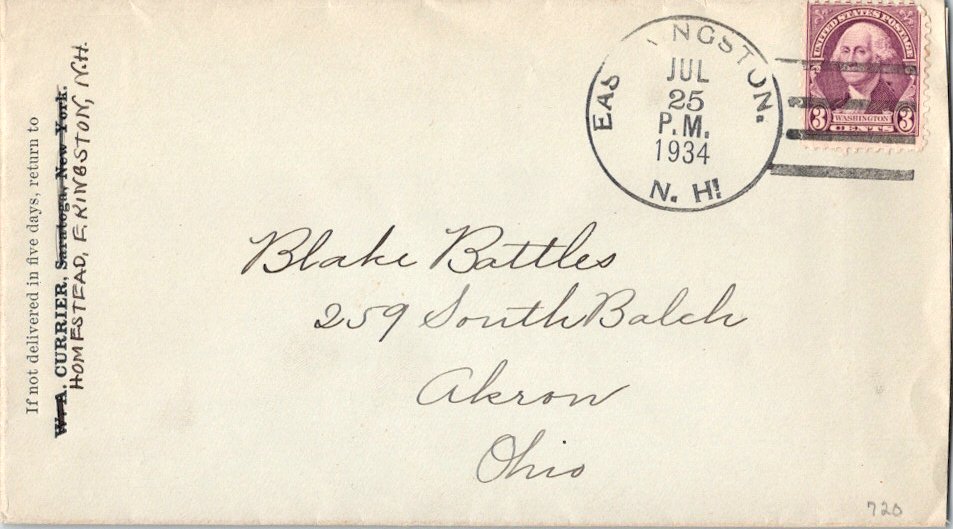 If not delivered in five days, return to
W. A. CURRIER, Saratoga, New York.
HOMESTEAD, E. KINGSTON, N.H.
EAS NGSTON.
JUL
25
P.M.
1934
N. H.
UNITED STATES POSTAGE
WASHINGTON
3 CENTS 3
Blake Battles
259 South Balch
Akron
Ohio
720